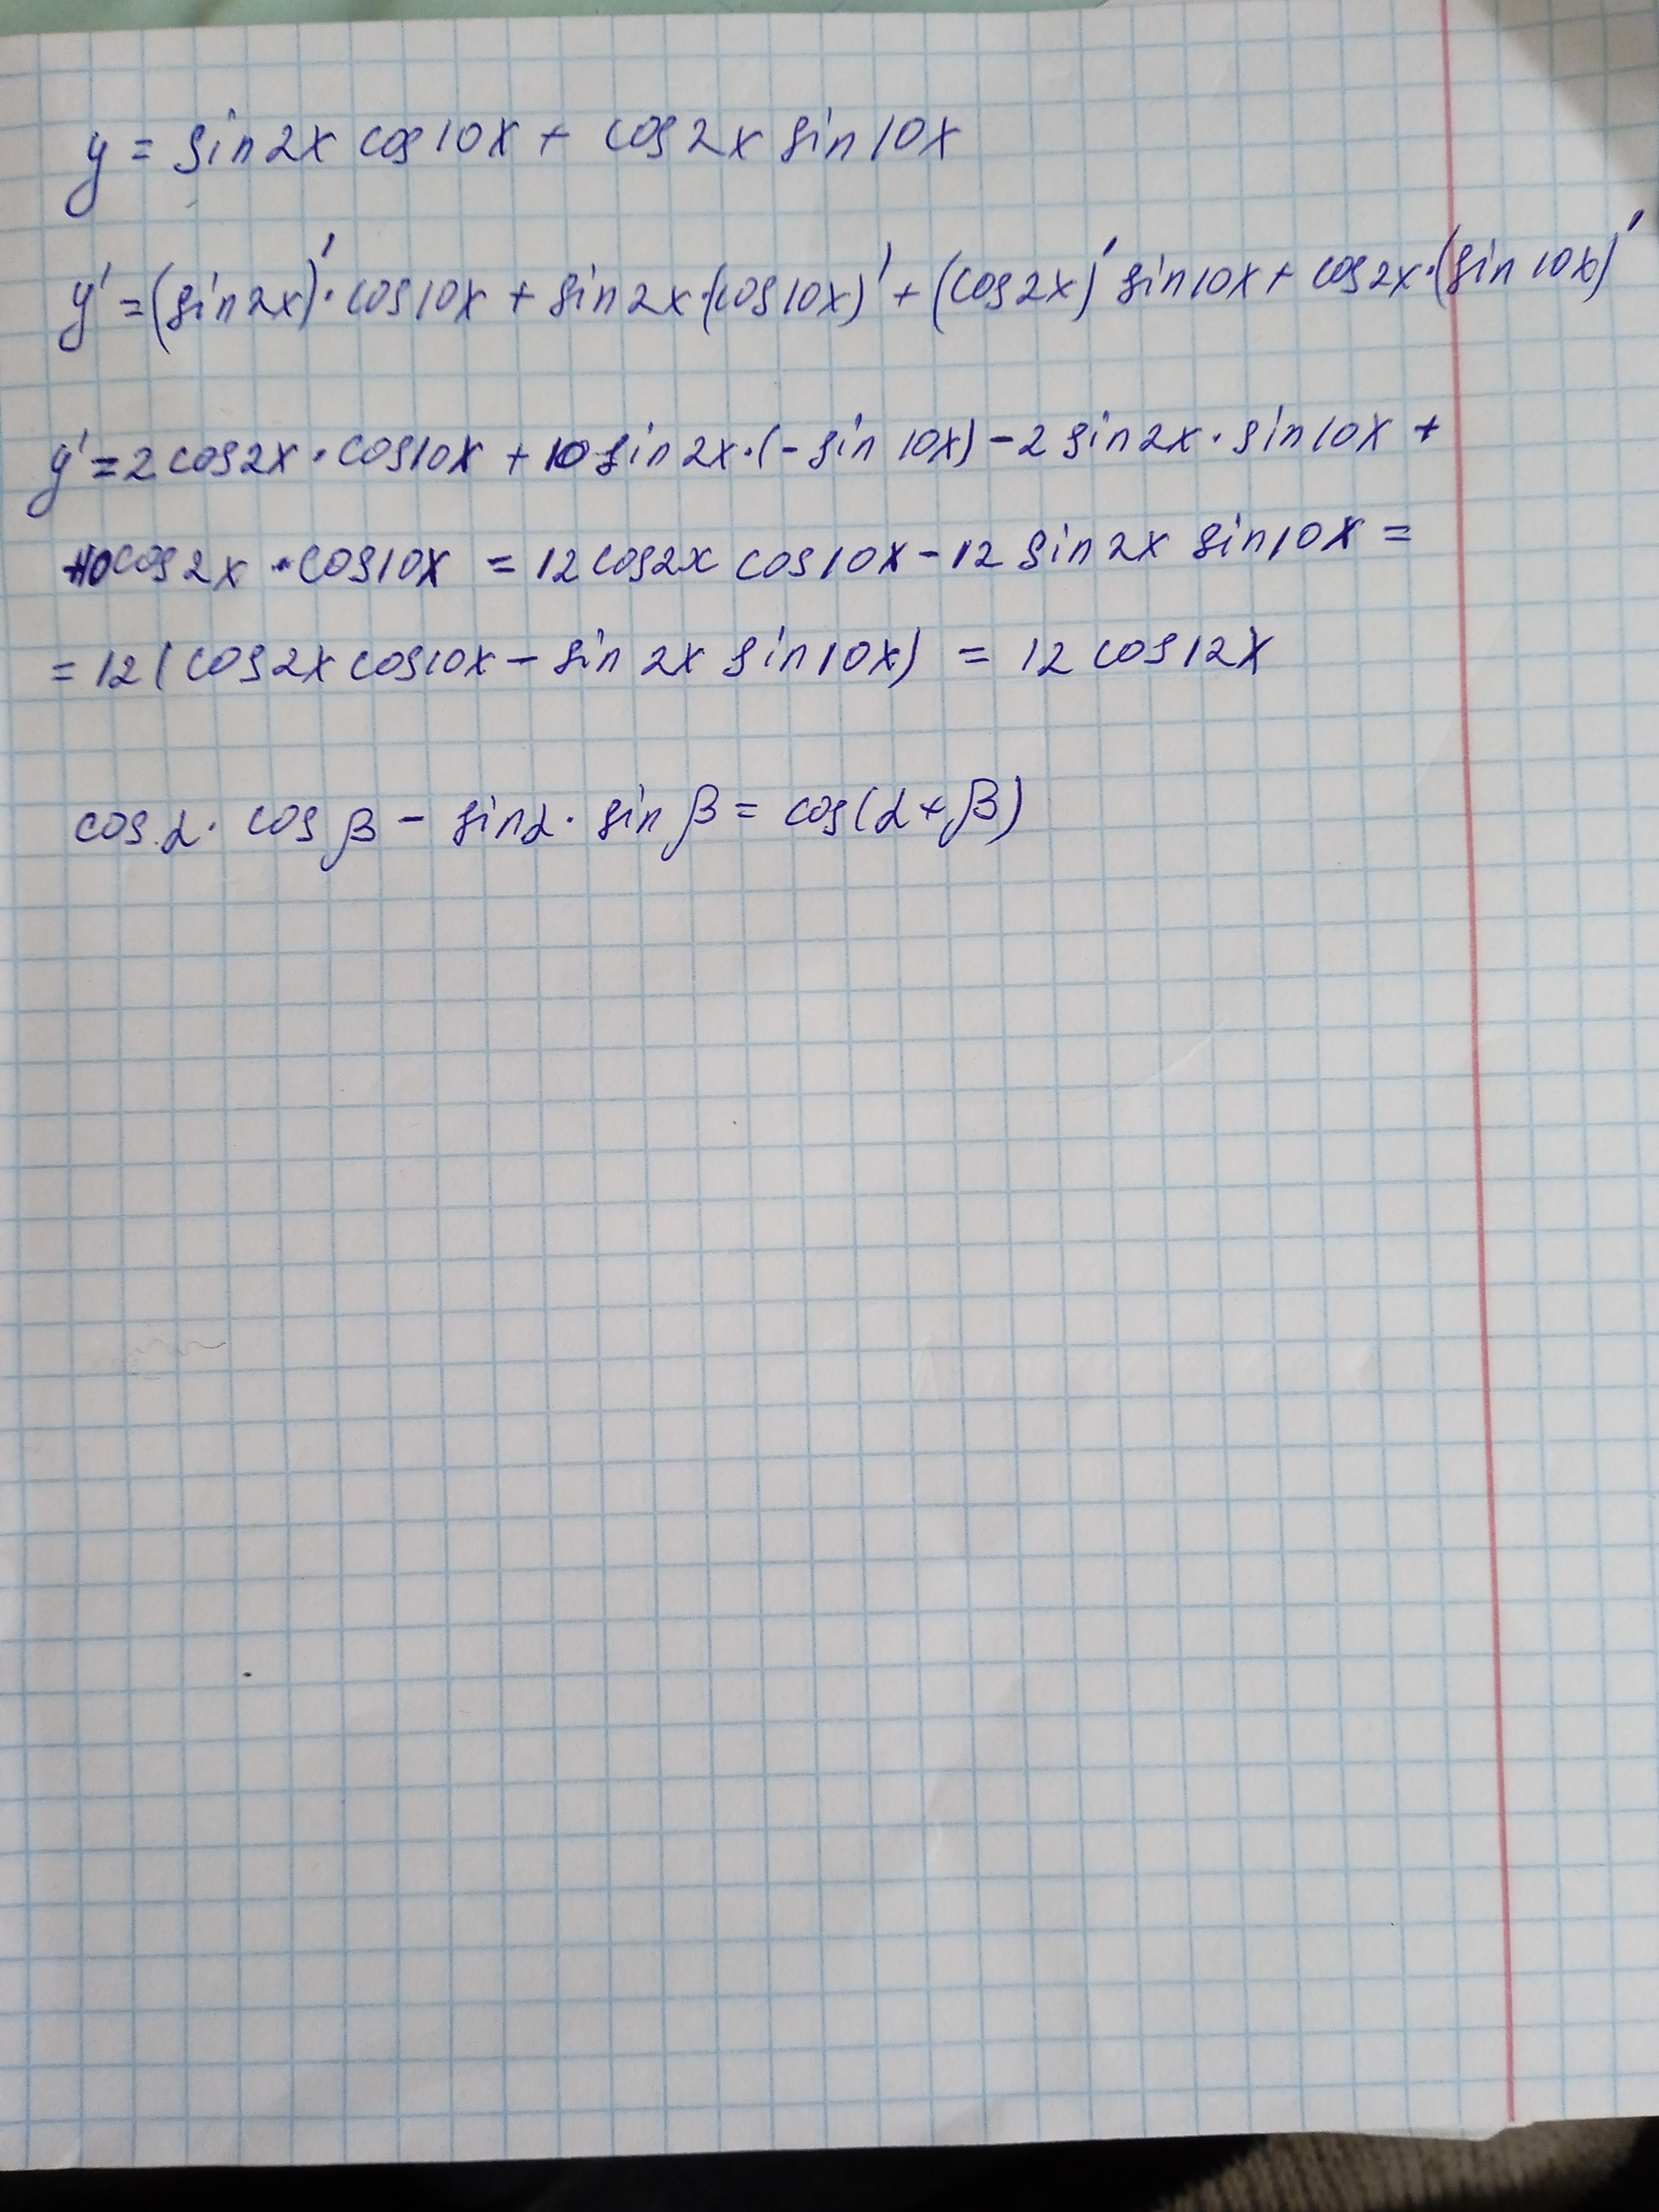 y = sin2x cos10x + cos2x sin10x
y' = (sin2x)'·cos10x + sin2x·(cos10x)' + (cos2x)' sin10x + cos2x·(sin10x)'
y' = 2cos2x·cos10x + 10sin2x·(-sin10x) - 2sin2x·sin10x +
+10cos2x·cos10x = 12cos2x cos10x - 12 sin2x sin10x =
= 12(cos2x cos10x - sin2x sin10x) = 12cos12x
cosα·cosβ - sinα·sinβ = cos(α+β)